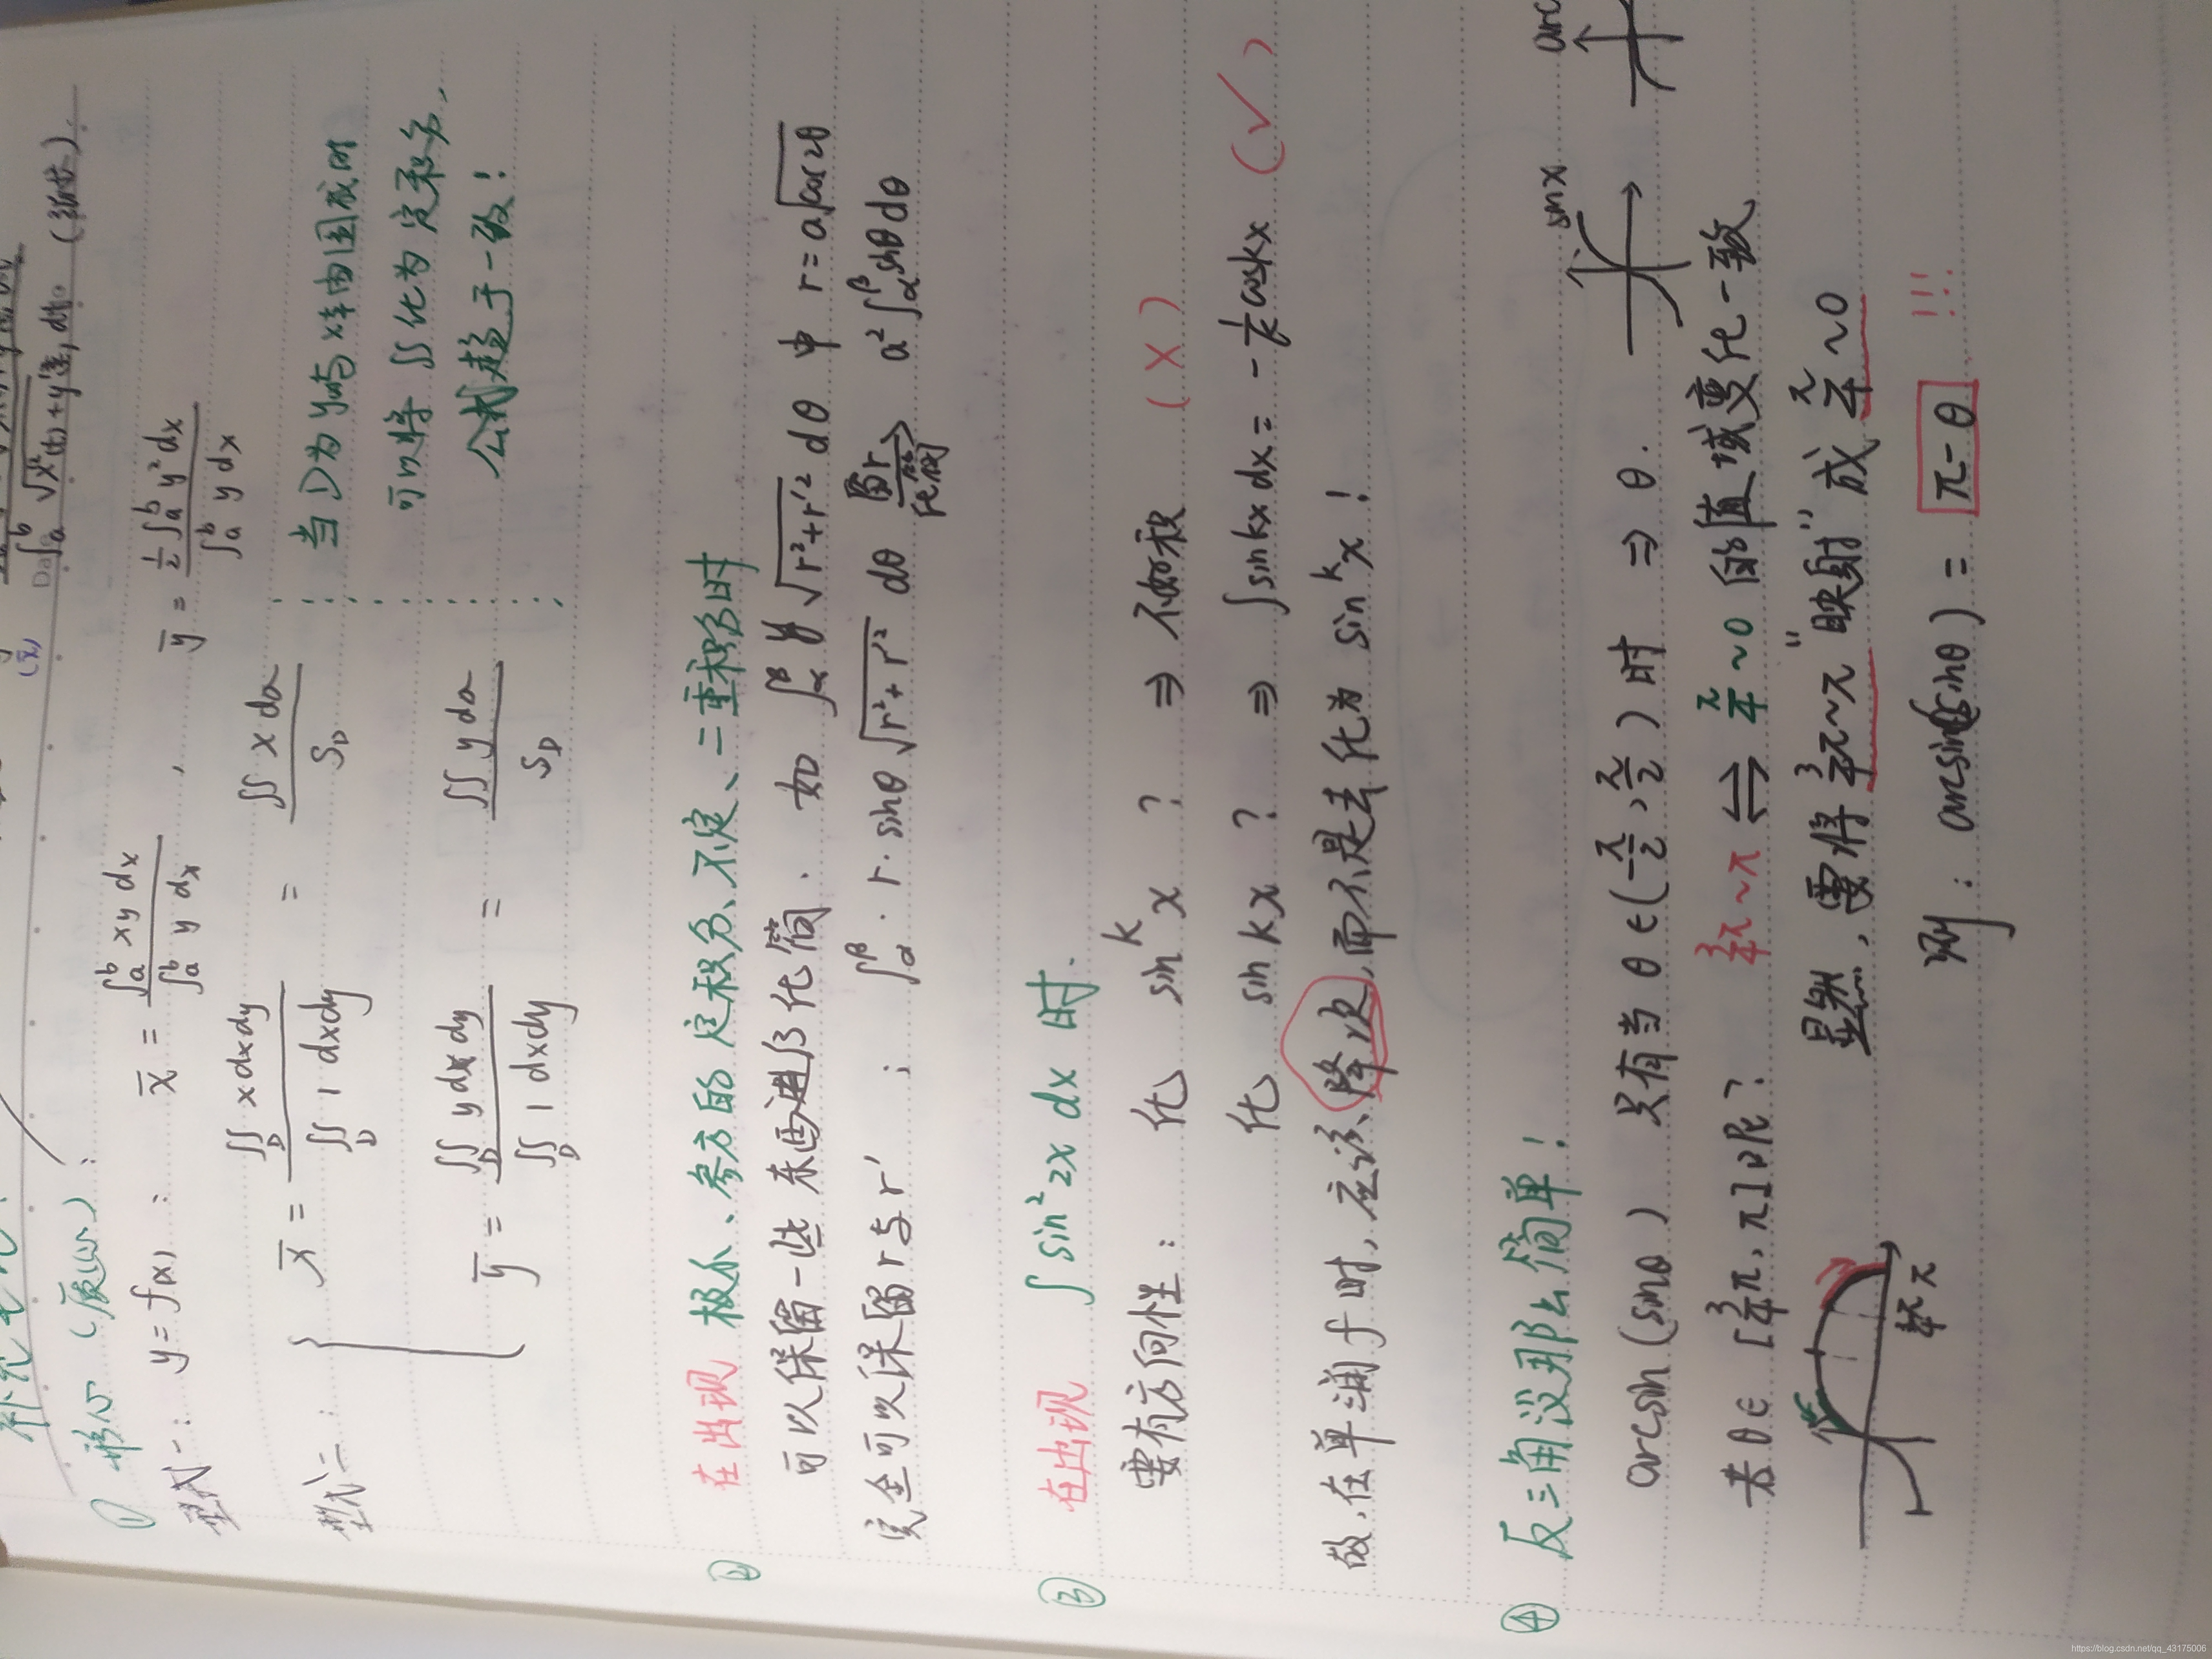 ∫ₐᵇ √(x'²(t)+y'²(t)) dt。（弧长）.
① 形心（质心）:
型式一: y=f(x): x̄ = ∫ₐᵇ xy dx / ∫ₐᵇ y dx , ȳ = ½∫ₐᵇ y² dx / ∫ₐᵇ y dx
型式二: { x̄ = ∬_D x dxdy / ∬_D 1 dxdy = ∬ x dσ / S_D
ȳ = ∬_D y dxdy / ∬_D 1 dxdy = ∬ y dσ / S_D
当D为y=与x轴围成时
可以将∬化为定积分,
公式趋于一致!
② 在出现 极小、参方的定积分、不定、二重积分时
可以保留一些东西进行化简. 如 ∫_α^β y √(r²+r'²) dθ 中 r=a√cos2θ
完全可以保留r与r' ; ∫_α^β · r·sinθ √(r²+r'²) dθ 留r/化简→ a²∫_α^β sinθdθ
③ 在出现 ∫sin²2x dx 时.
要有方向性: 化 sinᵏx ? ⇒ 不好积 (×)
化 sin kx ? ⇒ ∫sinkx dx = -1/k coskx (√)
故,在单独f时,应该降次,而不是去化为 sinᵏx !
④ 反三角没那么简单!
arcsin(sinθ) 只有当θ∈(-π/2,π/2)时 ⇒ θ. sinx arc
若θ∈[3/4π,π]呢? 3/4π~π ⇔ π/4~0 的值域变化一致
显然,要将 3/4π~π "映射"成 π/4~0
3/4π π
则: arcsin(sinθ) = π-θ !!!
https://blog.csdn.net/qq_43175006